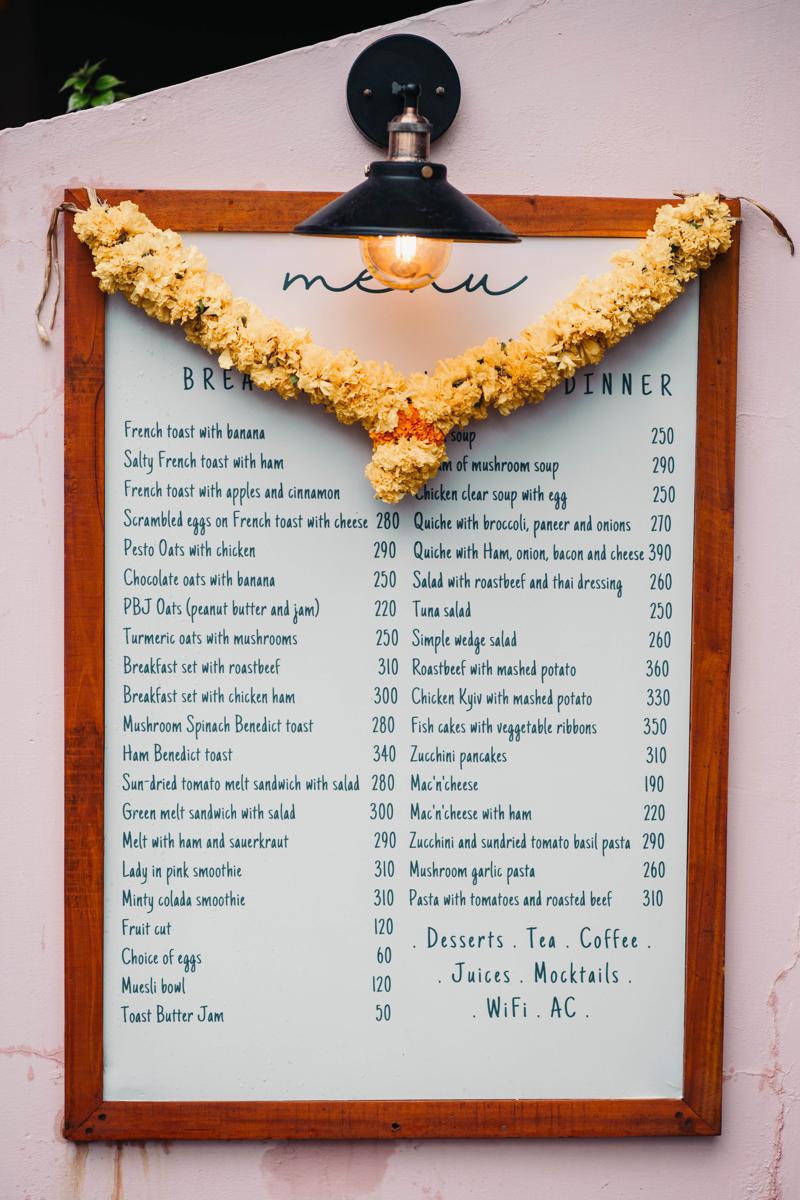 menu
DINNER
French toast with banana
Salty French toast with ham
French toast with apples and cinnamon
Scrambled eggs on French toast with cheese 280
Pesto Oats with chicken 290
Chocolate oats with banana 250
PBJ Oats (peanut butter and jam) 220
Turmeric oats with mushrooms 250
Breakfast set with roastbeef 310
Breakfast set with chicken ham 300
Mushroom Spinach Benedict toast 280
Ham Benedict toast 340
Sun-dried tomato melt sandwich with salad 280
Green melt sandwich with salad 300
Melt with ham and sauerkraut 290
Lady in pink smoothie 310
Minty colada smoothie 310
Fruit cut 120
Choice of eggs 60
Muesli bowl 120
Toast Butter Jam 50
soup 250
of mushroom soup 290
Chicken clear soup with egg 250
Quiche with broccoli, paneer and onions 270
Quiche with Ham, onion, bacon and cheese 390
Salad with roastbeef and thai dressing 260
Tuna salad 250
Simple wedge salad 260
Roastbeef with mashed potato 360
Chicken Kyiv with mashed potato 330
Fish cakes with veggetable ribbons 350
Zucchini pancakes 310
Mac'n'cheese 190
Mac'n'cheese with ham 220
Zucchini and sundried tomato basil pasta 290
Mushroom garlic pasta 260
Pasta with tomatoes and roasted beef 310
. Desserts . Tea . Coffee .
. Juices . Mocktails .
. WiFi . AC .